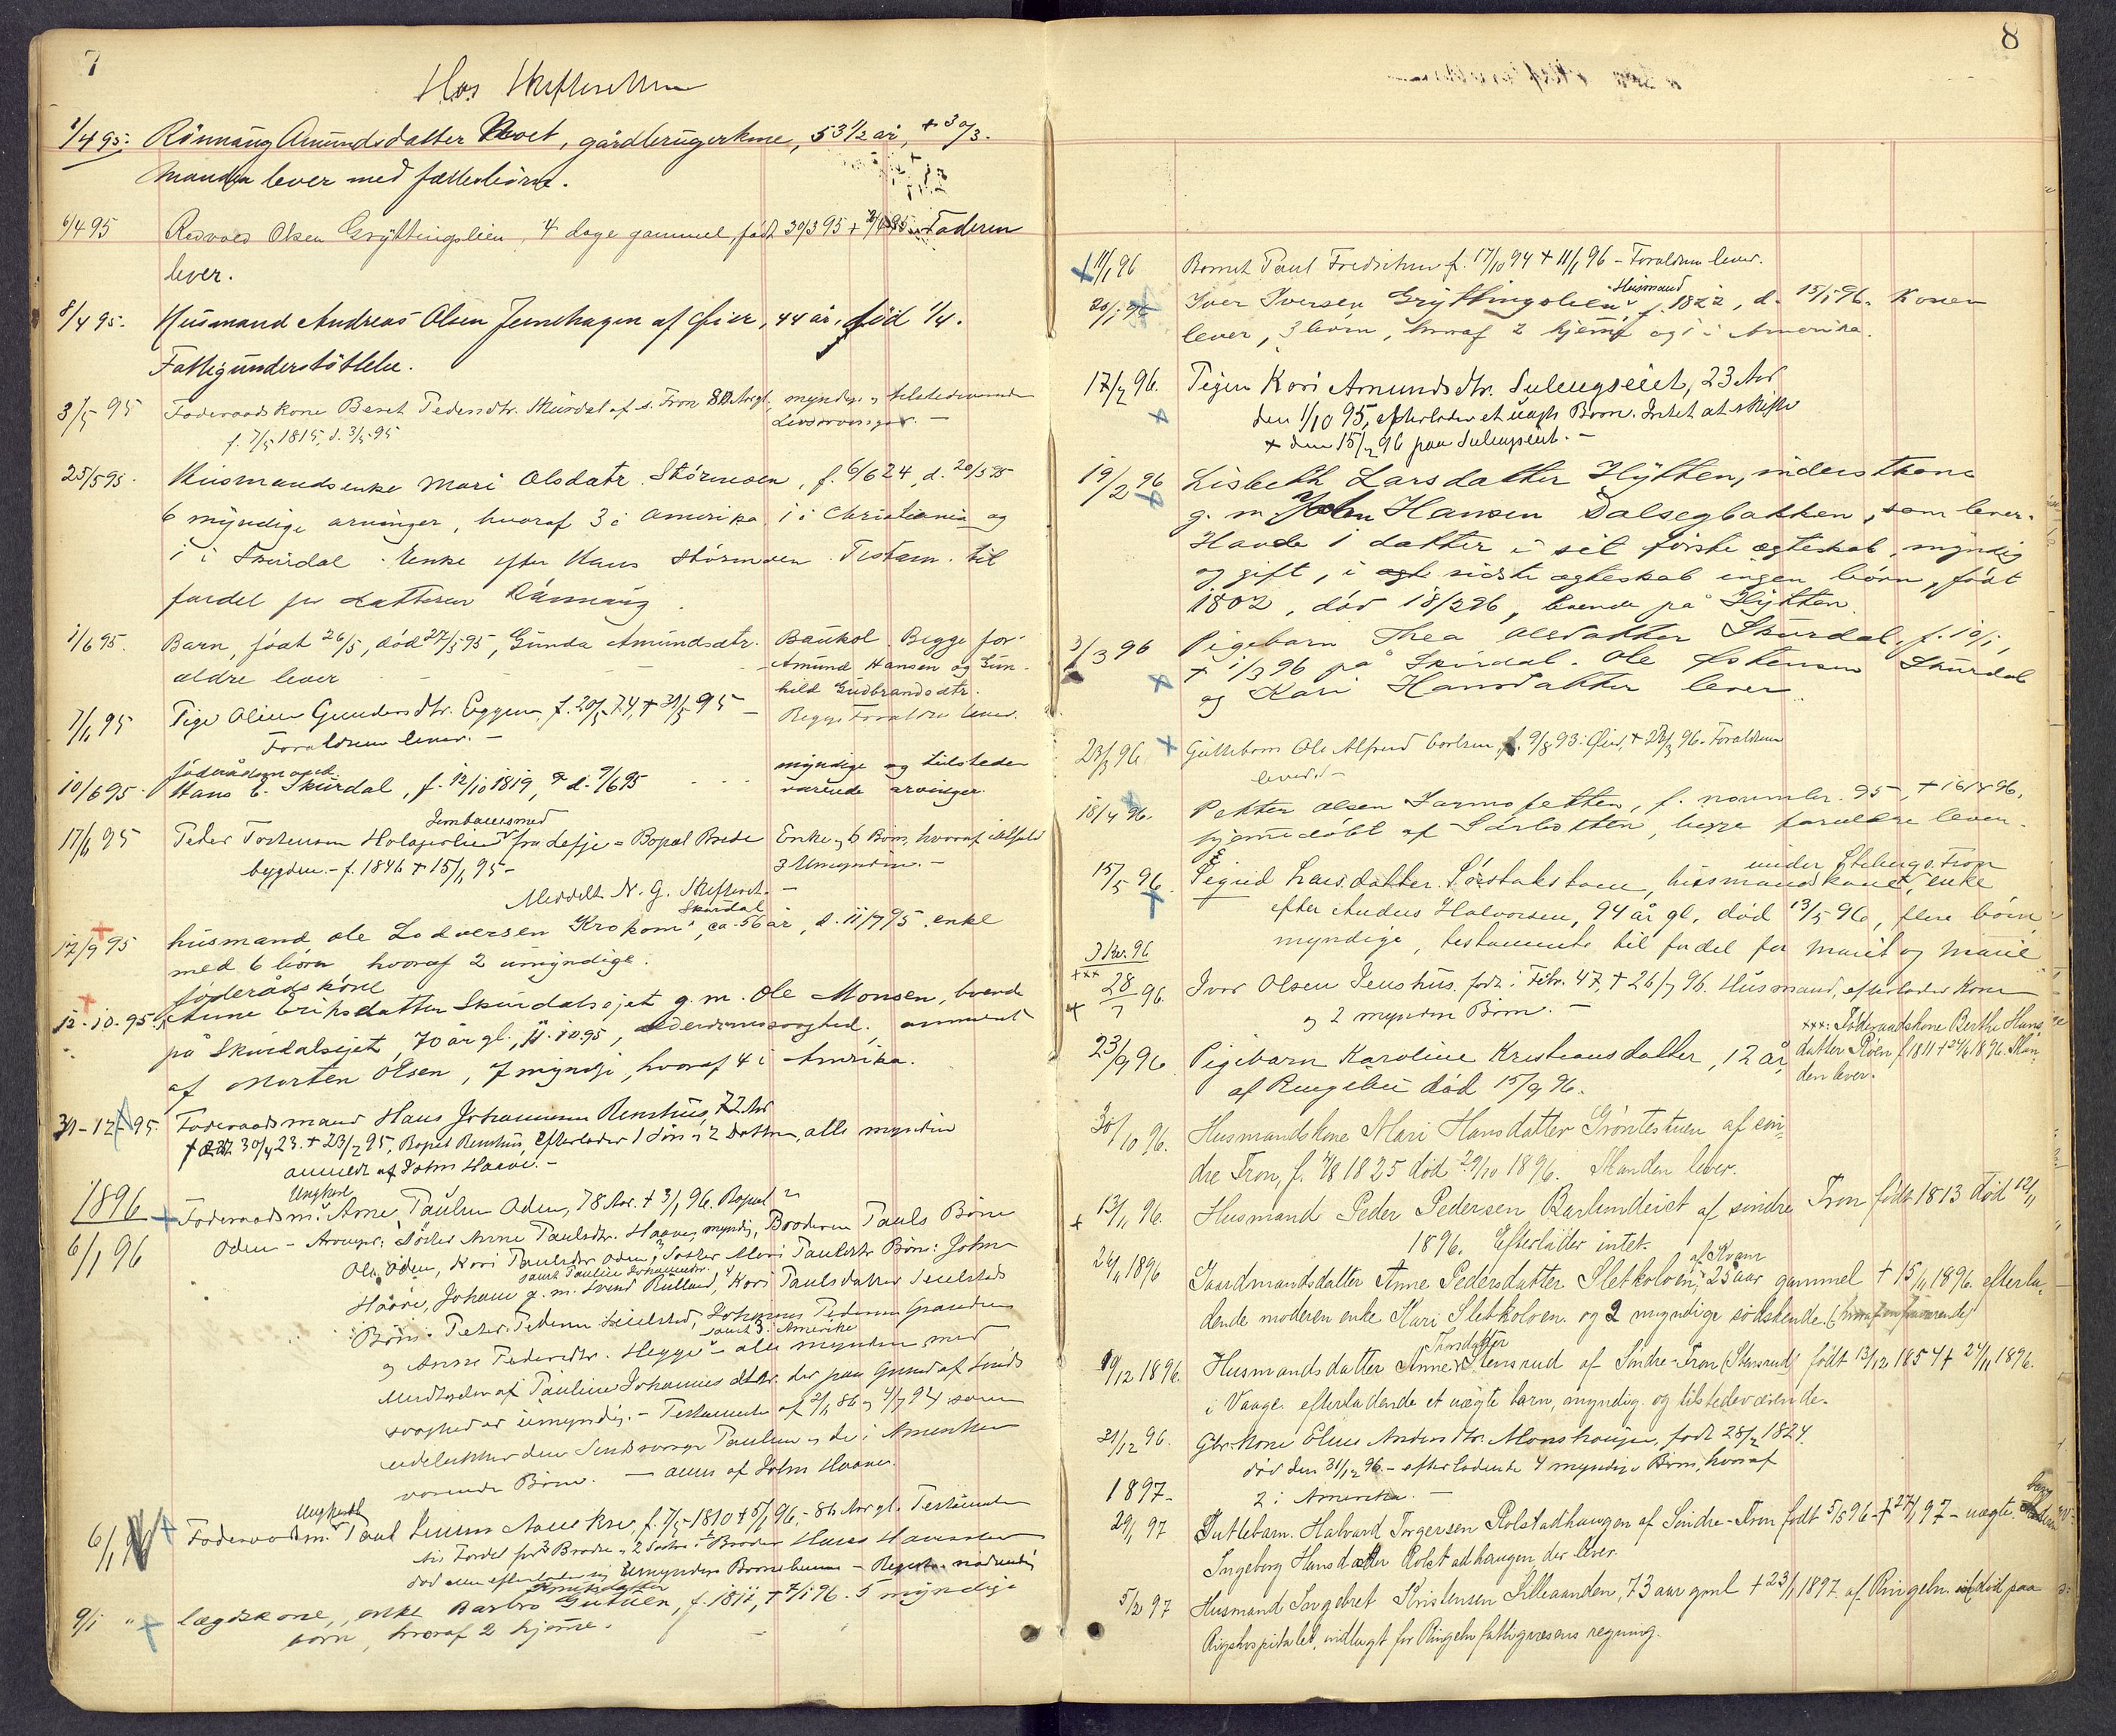 7
Hos
1/4 95. Rönnaug Amundsdatter, gårdbrugerkone, 53 1/2 år, + 30/3.
Manden lever med fællesbörn.
6/4 95 Olsen Gryttingslien, 4 dage gammel født 30/3 95 + Faderen
lever.
8/4 95. Husmand Andreas Olsen Jernehagen af Öier, 44 år, död 1/4.
Fattigunderstöttelse.
3/5 95 Foderaadskone Beret Pedersdtr. Skurdal af s. Fron 80 Aar gl., myndige og tilstedeværende
f. 7/5 1815, d. 3/5 95 Livsarvinger. —
25/5 95. Husmandsenke Mari Olsdatr. Störmoen, f. 6/6 24, d. 20/5 95
6 myndige arvinger, hvoraf 3 i Amerika, 1 i Christiania og
1 i Skurdal. Enke efter Hans Störmoen. Testam. til
fordel for datteren Rönnaug.
1/6 95. Barn, född 26/5, död 27/5 95, Gunda Amundsdtr. Baukol. Begge for-
ældre lever — Amund Hansen og Gun-
hild Gudbrandsdtr.
7/6 95 Pige Oline Gundersdtr. Eggen, f. 20/5 74, + 31/5 95 — Begge Forældre lever.
Forældrene lever. —
föderådsmand
10/6 95. Hans E. Skurdal, f. 12/10 1819, d. 9/6 95 myndige og tilstede
værende arvinger.
17/6 95 Peder Torstensen fra Lesje - Bopæl Brede Enke og 6 Börn, hvoraf
bygden. - f. 1846 + 15/6 95 — 3 Umyndige. —
Meddelt N. G. Skifteret. —
Skurdal
17/9 95 husmand Ole Lodversen Krokom, ca. 56 år, d. 11/7 95. enke
med 6 börn hvoraf 2 umyndige.
föderådskone
12-10-95. Anne Eriksdatter Skurdalsejet g. m. Ole Monsen, boende
på Skurdalsejet, 70 år gl., 11.10.95, alderdomssvaghed. anmeldt
af Morten Olsen, 7 myndige, hvoraf 4 i Amerika.
31-12-95. Foderaadsmand Hans Johannesen Renshus, 72 Aar
30/4 23. + 23/12 95, Bopæl Renshus, Efterlader 1 Sön og 2 Döttre, alle myndige
anmeldt af John Haave. —
1896
Ungkarl
6/1 96 Foderaadsm. Arne Paulsen Öden, 78 Aar. + 3/1 96. Bopæl
Öden - Arvinger: Söster Anne Paulsdtr. Haave, myndig, Broderen Pauls Börn
Ole Öden, Kari Paulsdtr. Öden, Söster Mari Paulsdtr. Börn: John
samt Pauline Johannesdtr.
Haave, Johane g. m. Svend Rulland, Kari Paulsdatter Seielstads
Börn: Peder Pedersen Seielstad, Johannes Pedersen
samt 3 i Amerika
og Anne Pedersdtr. Hegge - alle myndige, med
Undtagelse af Pauline Johannesdtr. der paa Grund af Sinds
svaghed er umyndig. - Testamente af 2/1 86 og 4/7 94 som
udelukker den Sindssvage Pauline og de i Amerika
værende Börn. — anm. af John Haave.
Ungkarl
6/1 96 Foderaadsm. Paul f. 7/5 1810 + 5/1 96, - 86 Aar gl. Testamente
til Fordel for 3 Brödre og 2 Söstre.
död uden efterladende sig Umyndige
Knutsdatter
9/1 " lægdskone, enke Barbro f. 1811, + 7/1 96. 5 myndige
börn, hvoraf 2 hjemme.
8
11/1 96 Barnet Paul Fredriksen f. 17/10 94 + 11/1 96 - Forældrene lever.
Husmand
20/1 96 Iver Iversen Gryttingslien, f. 1822, d. 15/1 96. Konen
lever, 3 börn, hvoraf 2 hjemme og 1 i Amerika.
17/2 96. Pigen Kari Amundsdtr. Sulengseiet, 23 Aar
den 1/10 95, efterlader et uægte Barn. Intet at skifte
+ den 15/2 96 paa Sulengseiet. —
19/2 96 Lisbeth Larsdatter Hytten, inderstkone
g. m. John Hansen Dalsegbakken, som lever.
Havde 1 datter i sit förste ægteskab, myndig
og gift, i sidste ægteskab ingen börn, födt
1802, död 18/2 96, boende på Hytten.
3/3 96 Pigebarn Thea Olsdatter Skurdal, f. 10/1,
+ 1/3 96 på Skurdal. Ole Østensen Skurdal
og Kari Hansdatter lever.
23/3 96 Guttebarn Ole Alfred Carlsen, f. 9/8 93 i Öier, + 23/3 96. Forældrene
lever. —
18/4 96. Petter Olsen, f. november 95, + 16/4 96.
hjemmedöbt af begge forældre lever.
under Steberg s. Fron
15/5 96. Sigrid Larsdatter, husmandskone, enke
efter Anders Halvorsen, 94 år gl. död 13/5 96, flere börn
myndige, testamente til fordel for Marit og Marie
3 Kv. 96
xxx
28/7 96. Ivar Olsen Jenshus. födt i Febr. 47, + 26/7 96. Husmand, efterlader Kone
og 2 myndige Börn. —
xxx: Föderaadskone Berthe Hans-
datter Röen f. 1811 + 1896. Man-
den lever.
23/9 96 Pigebarn Karoline Kristiansdatter, 12 år,
af Ringebu död 15/9 96.
30/10 96. Husmandskone Mari Hansdatter Gröntestuen af søn-
dre Fron, f. 4/8 1825 död 29/10 1896. Manden lever.
13/11 96. Husmand Peder Pedersen Barlundeiet af søndre Fron födt 1813 död 12/11
1896. Efterlater intet.
af Kvam
26/11 1896 Gaardmandsdatter Anne Pedersdatter Sletkolven, 25 aar gammel + 15/11 1896. efterla-
dende moderen enke Mari Sletkolven. og 2 myndige södskende.
Thordatter
9/12 1896. Husmandsdatter Anne Stensrud af Söndre-Fron (Stensrud) födt 13/12 1854 + 27/11 1896.
i Vaage. efterladende et uægte barn, myndig og tilstedeværende.
31/12 96. Gbr. Kone Eline Andersdtr. Monshaugen, födt 28/2 1824.
död den 31/12 96 - efterladende 4 myndige Börn, hvoraf
2 i Amerika. —
1897-
29/1 97 Guttebarn. Halvard Torgersen Rolstadhaugen af Söndre-Fron födt 5/5 96 - + 27/1 97 - uægte.
Ingeborg Hansdatter Rolstadhaugen, der lever.
5/2 97 Husmand Torgebret Kristensen Lilleaanden, 73 aar gml + 23/1 1897. af Ringebu død paa
Rigshospitalet, indlagt for Ringebu fattigvæsens regning.